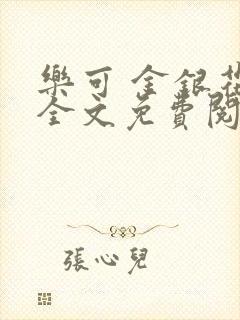 樂可 金銀花
全文免費閱
張心兒